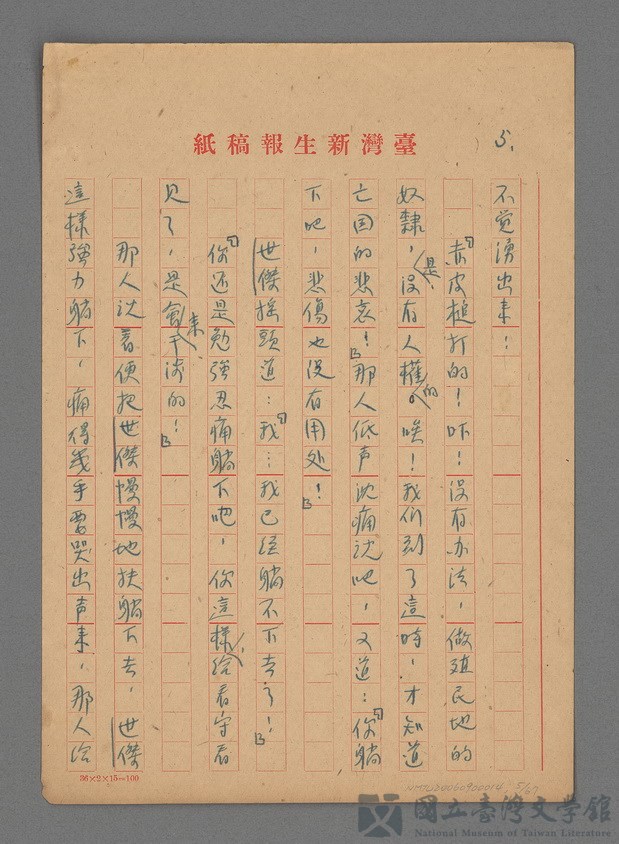 5.
臺灣新生報稿紙
不覚湧出来！
「赤皮槌打的！咔！没有办法，做殖民地的
奴隸，是没有人權的唉！我们到了這時，才知道
亡国的悲哀！」那人低声沈痛说吧，又道：「你躺
下吧，悲傷也没有用处！」
世傑摇頭道：「我…我已经躺不下去了！」
「你还是勉強忍痛躺下吧，你這樣，给看守看
見了，是會来干涉的！」
那人说着便把世傑慢慢地扶躺下去，世傑
這樣強力躺下，痛得幾乎要哭出声来，那人给
36×2×15=100
NMTL20060900014 5/67
國立臺灣文學館
National Museum of Taiwan Literature